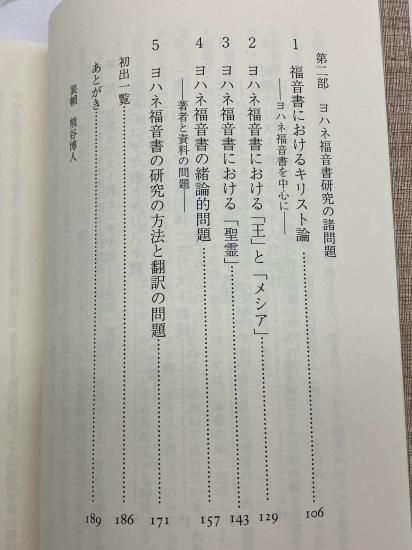 第二部　ヨハネ福音書研究の諸問題
1　福音書におけるキリスト論 106
――ヨハネ福音書を中心に――
2　ヨハネ福音書における「王」と「メシア」 129
3　ヨハネ福音書における「聖霊」 143
4　ヨハネ福音書の緒論的問題 157
――著者と資料の問題――
5　ヨハネ福音書の研究の方法と翻訳の問題 171
初出一覧 186
あとがき 189
装幀　熊谷博人